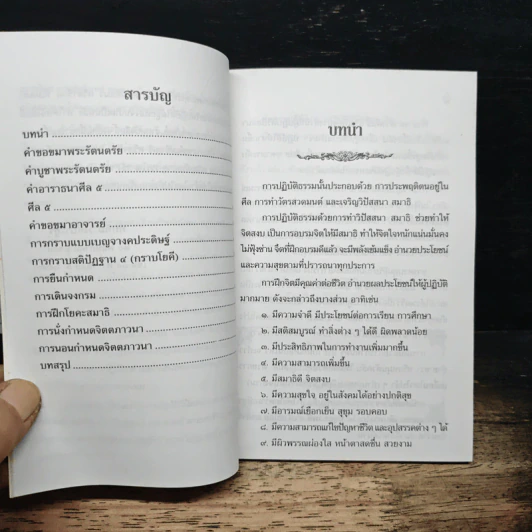 สารบัญ
บทนำ
คำขอขมาพระรัตนตรัย
คำบูชาพระรัตนตรัย
คำอาราธนาศีล ๕
ศีล ๕
คำขอขมาอาจารย์
การกราบแบบเบญจางคประดิษฐ์
การกราบสติปัฏฐาน ๔ (กราบโยคี)
การยืนกำหนด
การเดินจงกรม
การฝึกโยคะสมาธิ
การนั่งกำหนดจิตตภาวนา
การนอนกำหนดจิตตภาวนา
บทสรุป
บทนำ
การปฏิบัติธรรมนั้นประกอบด้วย การประพฤติตนอยู่ใน
ศีล การทำวัตรสวดมนต์ และเจริญวิปัสสนา สมาธิ
การปฏิบัติธรรมด้วยการทำวิปัสสนา สมาธิ ช่วยทำให้
จิตสงบ เป็นการอบรมจิตให้มีสมาธิ ทำให้จิตใจหนักแน่นมั่นคง
ไม่ฟุ้งซ่าน จิตที่ฝึกอบรมดีแล้ว จะมีพลังเข้มแข็ง อำนวยประโยชน์
และความสุขตามที่ปรารถนาทุกประการ
การฝึกจิตมีคุณค่าต่อชีวิต อำนวยผลประโยชน์ให้ผู้ปฏิบัติ
มากมาย ดังจะกล่าวถึงบางส่วน อาทิเช่น
๑. มีความจำดี มีประโยชน์ต่อการเรียน การศึกษา
๒. มีสติสมบูรณ์ ทำสิ่งต่าง ๆ ได้ดี ผิดพลาดน้อย
๓. มีประสิทธิภาพในการทำงานเพิ่มมากขึ้น
๔. มีความสามารถเพิ่มขึ้น
๕. มีสมาธิดี จิตสงบ
๖. มีความสุขใจ อยู่ในสังคมได้อย่างปกติสุข
๗. มีอารมณ์เยือกเย็น สุขุม รอบคอบ
๘. มีความสามารถแก้ไขปัญหาชีวิต และอุปสรรคต่าง ๆ ได้
๙. มีผิวพรรณผ่องใส หน้าตาสดชื่น สวยงาม